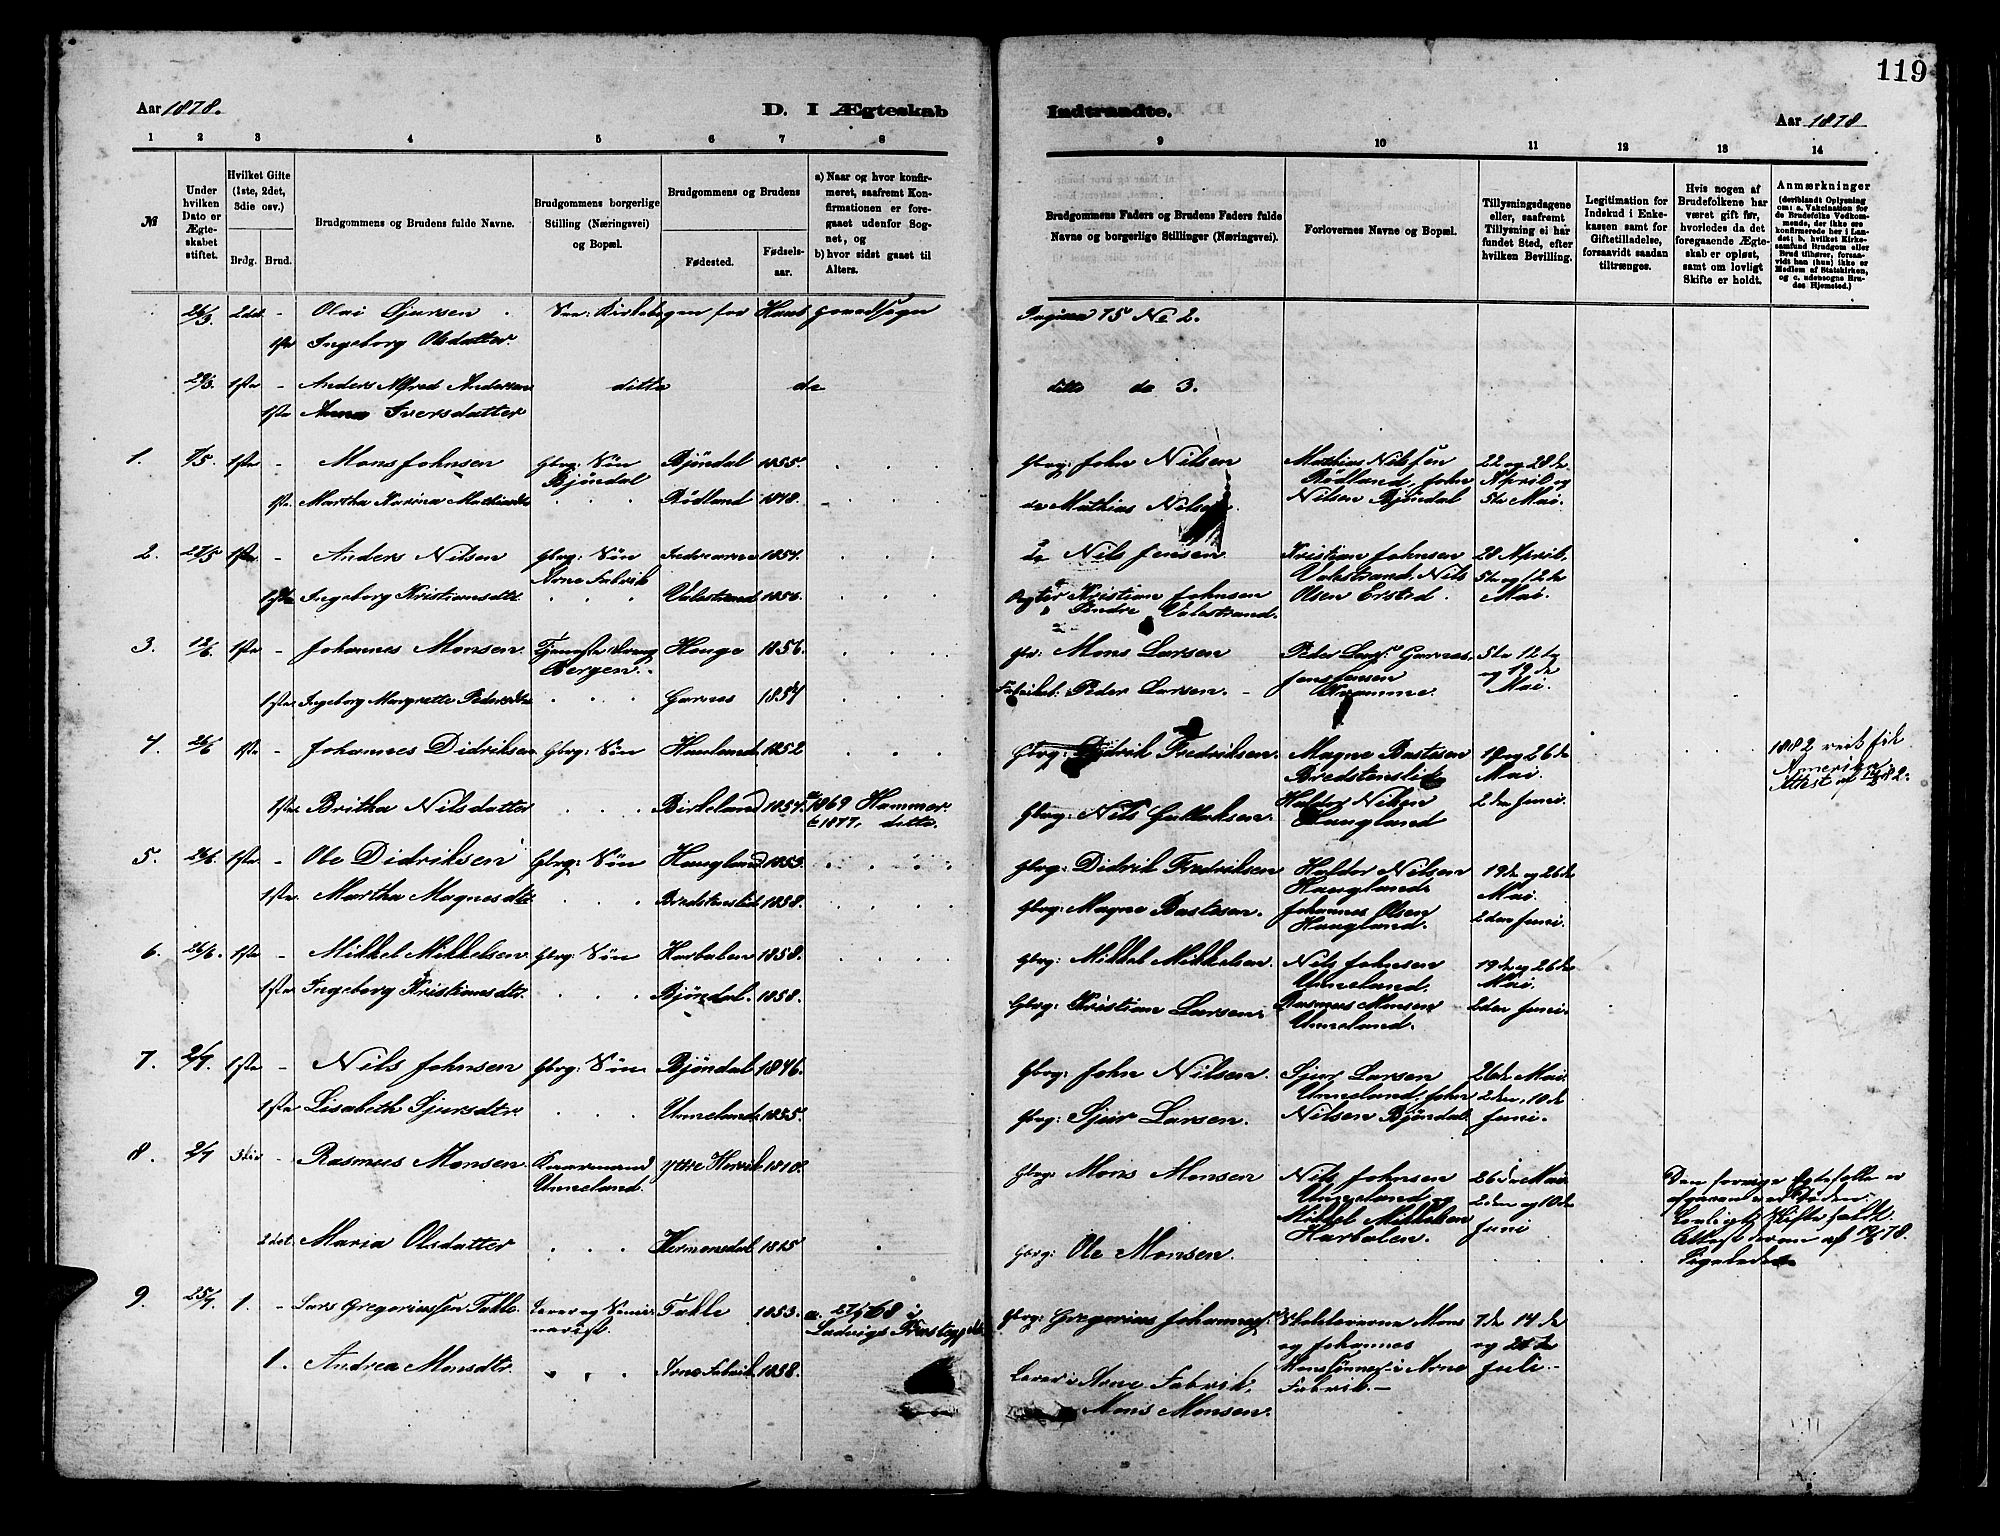 119
Aar 1878.
D. I Ægteskab
Indtraadte.
Aar 1878
1 2 3 4 5 6 7 8
9 10 11 12 13 14
№
Under hvilken Dato er Ægte-skabet stiftet.
Hvilket Gifte (1ste, 2det, 3die osv.)
Brdg. Brud.
Brudgommens og Brudens fulde Navne.
Brudgommens borgerlige Stilling (Næringsvei) og Bopæl.
Brudgommens og Brudens
Fødested.
Fødsels-aar.
a) Naar og hvor konfir-meret, saafremt Kon-firmationen er fore-gaaet udenfor Sog-net, og
b) hvor sidst gaaet til Alters.
Brudgommens Faders og Brudens Faders fulde Navne og borgerlige Stillinger (Næringsvei).
Forlovernes Navne og Bopæl.
Tillysningsdagene eller, saafremt Tillysning ei har fundet Sted, efter hvilken Bevilling.
Legitimation for Indskud i Enke-kassen samt for Giftetilladelse, forsaavidt saadan tiltrænges.
Hvis nogen af Brudefolkene har været gift før, hvorledes da det foregaaende Ægte-skab er opløst, samt om lovligt Skifte er holdt.
Anmærkninger
(deriblandt Oplysning om: a. Vakcination for de Brudefolks Vedkom-mende, der ikke ere konfirmerede her i Lan-det; b. hvilket Kirke-samfund Brudgom eller Brud tilhører, forsaa-vidt han (hun) ikke er Medlem af Statskirken, og c. udensogns Bru-des Hjemsted.)
26/3 2det - Olai Gjursen . Kirkebogen for Haus
Pagina 75 No 2.
1ste Ingeborg Olsdatter.
29/3 1ste - Anders Alfred Andersen ditto do
ditto do 3.
1ste Anna Iversdatter
1. 7/5 1ste - Mons Johnsen Gbrg: Søn Bjöndal Bjöndal 1855.
Gbrg: John Nilsen Mathias Nilsen Rödland, John Nilsen Bjöndal 22 og 28de April og 5te Mai.
1ste Martha Karina Rödland
do Mathias Nilsen
2. 27/5 1ste - Anders Nilsen Gbrg: Søn Arne Fabrik 1854.
do Nils Jensen Kristian Johnsen Valestrand, Nils Olsen Ersted. 28 April, 5te og 12te Mai.
1ste Ingeborg Kristiansdtr Valestrand 1856.
Kristian Johnsen Valestrand.
3. 12/6 1ste - Johannes Monsen Bergen. Hauge 1856.
Mons Larsen Peder Garnes, Jens Jensen 5te 12te og 19de Mai.
1ste Ingeborg Margrette Garnes 1854
Peder Larsen. -
4. 26/6 1ste - Johannes Didriksen Gbrg: Søn 1852
Gbrg: Didrik Fredriksen. Magne Bastesen Bredstenslid 19 og 26de Mai.
1882 Amerika Attest
1ste Britha Nilsdatter Birkeland 1854. a 1869 Hammer. b 1877. ditto.
Gbrg: Nils Haldor Nilsen Haugland 2den Juni.
5. 26/6 1ste - Ole Didriksen Gbrg: Søn Haugland 1853.
Gbrg: Didrik Fredriksen Haldor Nilsen Haugland. 19de og 26de Mai.
1ste Martha Magnesdtr. Bredstenslid 1858.
Gbrg: Magne Bastesen. Johannes Olsen Haugland. 2den Juni.
6. 26/6. 1ste - Mikkel Mikkelsen Gbrg: Søn Harbalen 1858.
Gbrg: Mikkel Mikkelsen. Nils Johnsen Unneland. 19de og 26de Mai.
1ste Ingeborg Kristiansdtr. Bjöndal. 1858.
Gbrg: Kristian Larsen. Rasmus Monsen Unneland. 2den Juni.
7. 2/7 1ste - Nils Johnsen Gbrg: Søn. Bjöndal 1846.
Gbrg: John Nilsen. Sjur Larsen Unneland, John Nilsen Bjöndal 26de Mai 2den, 10de Juni.
1ste Lisabeth Sjursdtr Unneland 1855.
Gbrg: Sjur Larsen.
8. 2/7 3die - Rasmus Monsen. Kaarmand Unneland. Ytre 1810.
Gbrg: Mons Monsen Nils Johnsen Unneland og Mikkel Mikkelsen Harbalen. 26de Mai 2den og 10de Juni
2det Maria Olsdatter Hermansdal 1815
Gbrg: Ole Monsen.
Den forrige Egtefælle er ved Döden. Lovligt Skifte Attest derom af
9. 25/7 1. - Lars Gregoriussen Takle. Lærer og Seminarist. Takle 1853. a. 27/9 68 i
Gbrg: Gregorius Mons og Johannes i Arne Fabrik.- 7de 14de og 21de Juli.-
1. Andrea Monsdtr. Arne Fabrik 1858.
Lærer i Arne Fabrik, Mons Monsen.